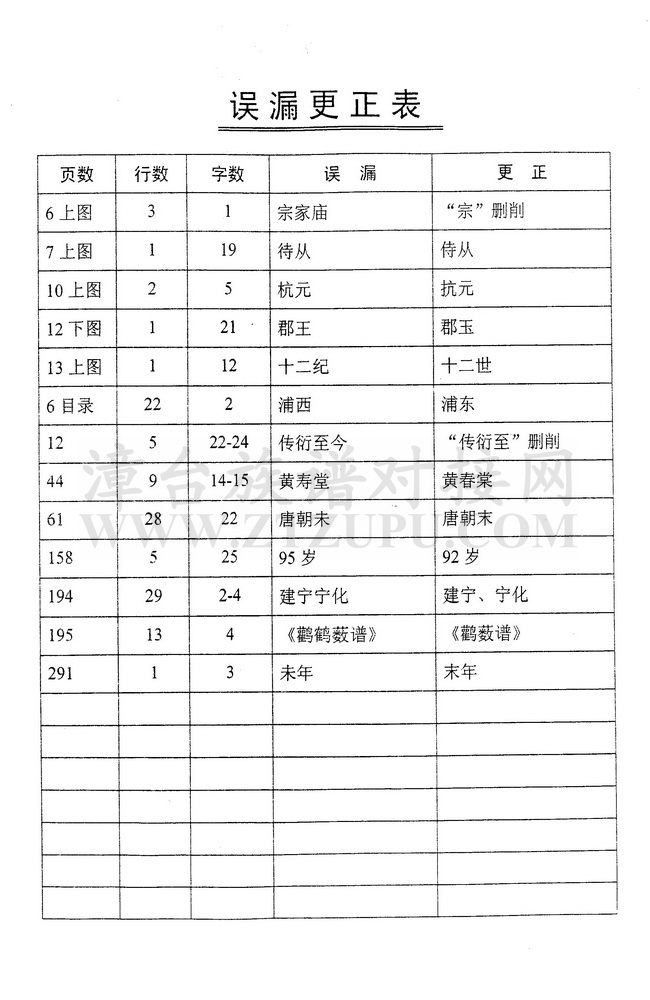 误漏更正表
页数 行数 字数 误 漏 更 正
6上图 3 1 宗家庙 “宗”删削
7上图 1 19 待从 侍从
10上图 2 5 杭元 抗元
12下图 1 21 郡王 郡玉
13上图 1 12 十二纪 十二世
6目录 22 2 浦西 浦东
12 5 22-24 传衍至今 “传衍至”删削
44 9 14-15 黄寿堂 黄春棠
61 28 22 唐朝未 唐朝末
158 5 25 95岁 92岁
194 29 2-4 建宁宁化 建宁、宁化
195 13 4 《鹳鹤薮谱》 《鹳薮谱》
291 1 3 未年 末年
漳台族谱对接网
WWW.ZTZUPU.COM